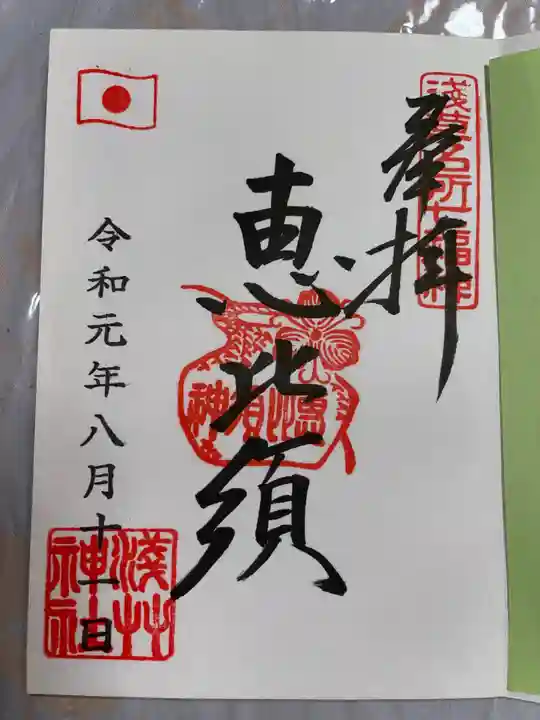 浅草名所七福神
奉拝
恵比須
恵比須神
令和元年八月十一日
浅草神社